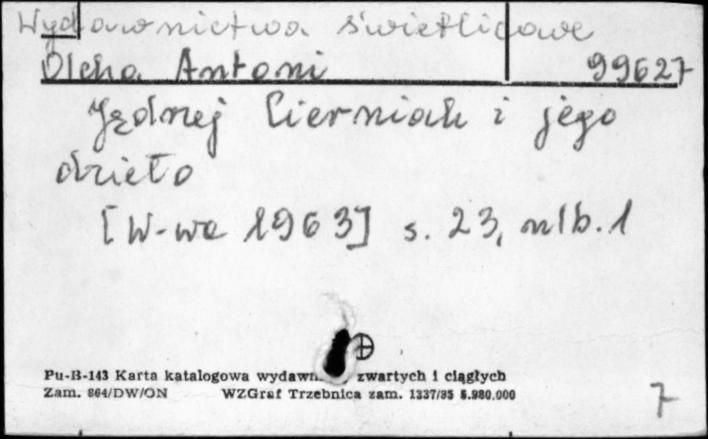 Wydawnictwa świetlicowe
Olcha Antoni 99627
Jędrzej Cierniak i jego
dzieło
[W-wa 1963] s. 23, nlb. 1
Pu-B-143 Karta katalogowa zwartych i ciągłych
Zam. 864/DW/ON WZGraf Trzebnica zam. 1337/85 5.980.000
7